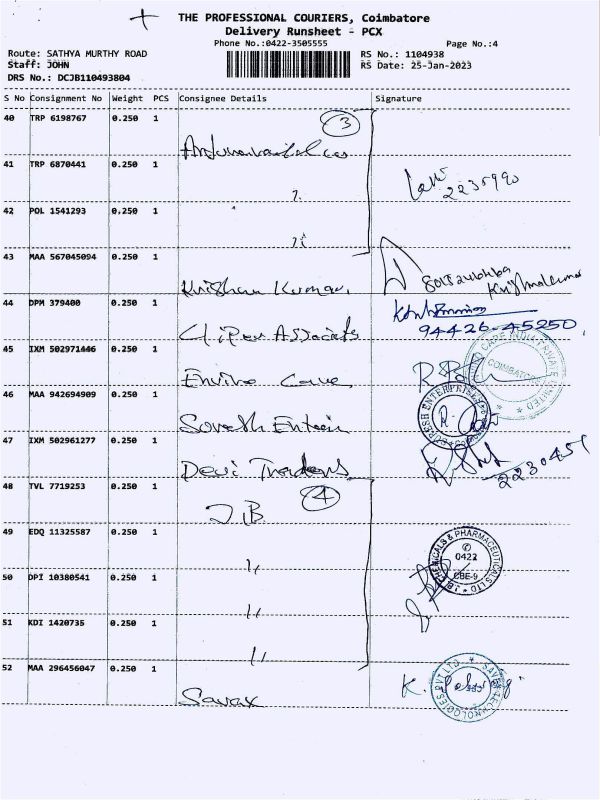 THE PROFESSIONAL COURIERS, Coimbatore
Delivery Runsheet - PCX
Phone No.:0422-3505555
Page No.:4
Route: SATHYA MURTHY ROAD
RS No.: 1104938
Staff: JOHN
RS Date: 25-Jan-2023
DRS No.: DCJB110493804
S No Consignment No Weight PCS Consignee Details Signature
40 TRP 6198767 0.250 1
3
41 TRP 6870441 0.250 1
2235990
42 POL 1541293 0.250 1
43 MAA 567045094 0.250 1
Krishna Kumar.
44 DPM 379400 0.250 1
94426-45250
Associates
45 IXM 502971446 0.250 1
COIMBATORE
Enviro Care
46 MAA 942694909 0.250 1
SURESH ENTERPRISES
Suresh
47 IXM 502961277 0.250 1
Devi Traders
2230451
48 TVL 7719253 0.250 1
4
J.B.
49 EDQ 11325587 0.250 1
J.B. CHEMICALS & PHARMACEUTICALS LTD
0422
CBE-9
50 DPI 10380541 0.250 1
51 KDI 1420735 0.250 1
52 MAA 296456047 0.250 1
SAVEX TECHNOLOGIES PVT LTD
Savax